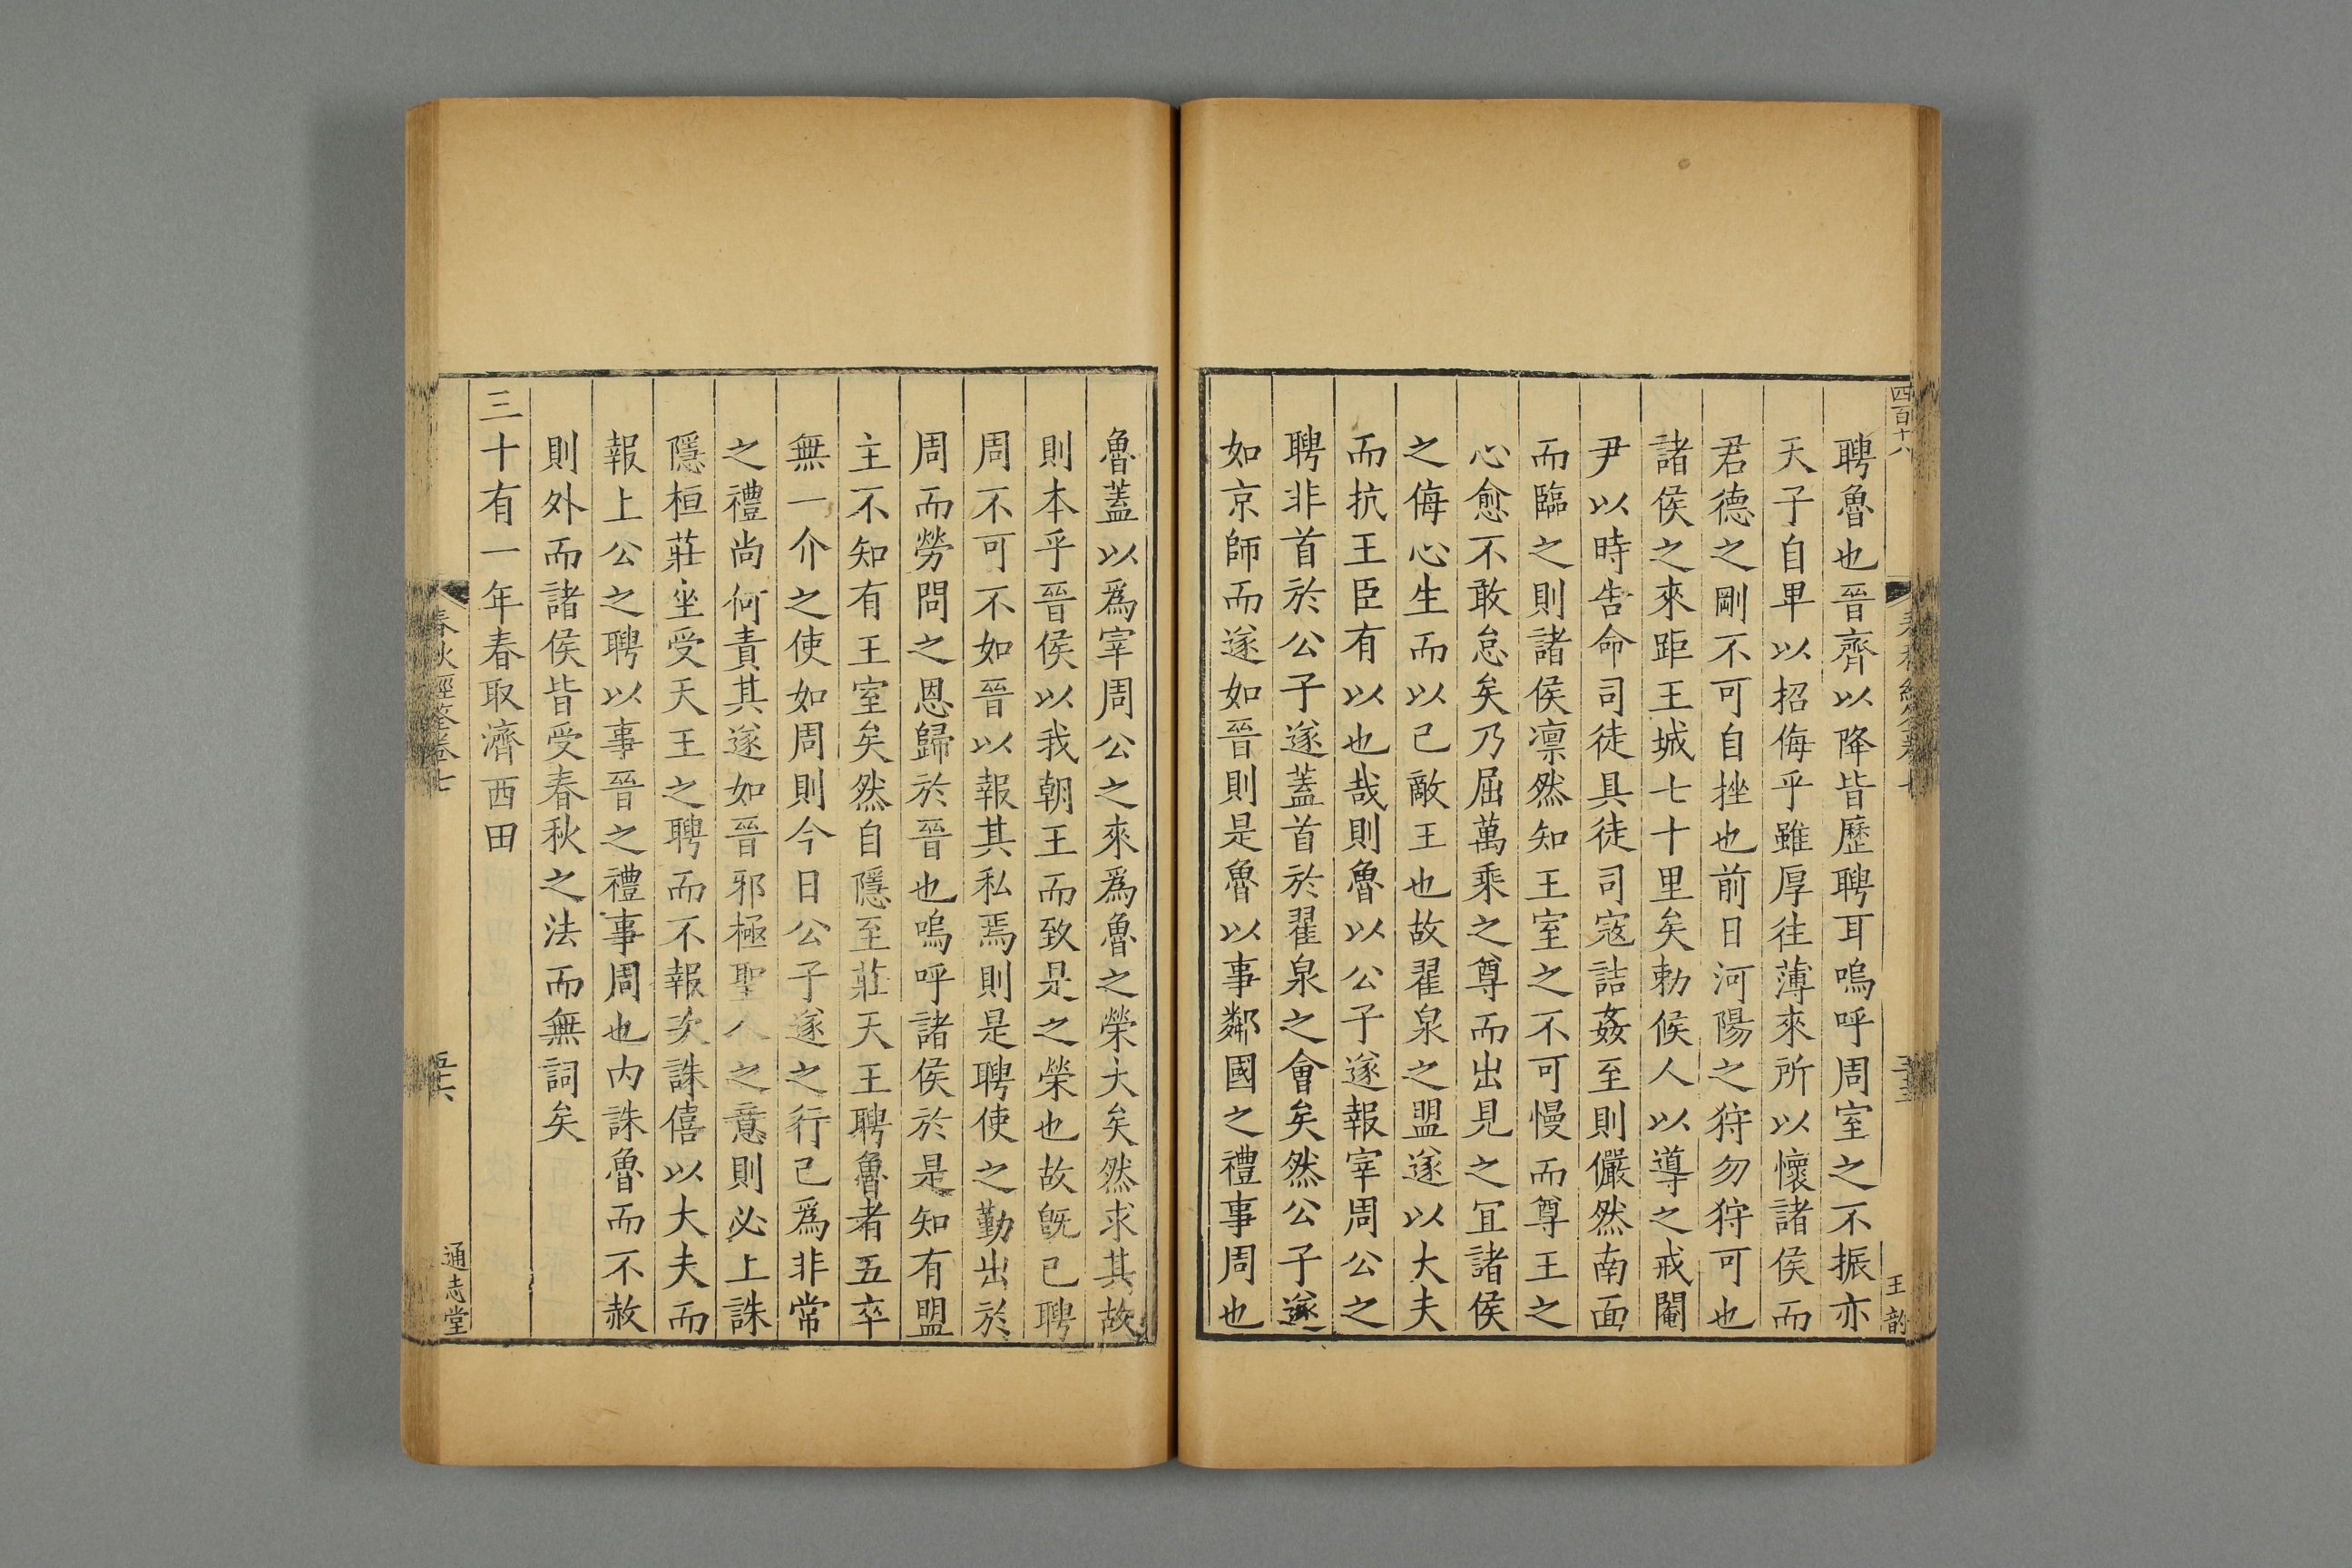 四百十八
王韵
聘魯也晉齊以降皆歷聘耳嗚呼周室之不振亦
天子自卑以招侮乎雖厚往薄來所以懷諸侯而
君德之剛不可自挫也前日河陽之狩勿狩可也
諸侯之來距王城七十里矣勅候人以導之戒閽
尹以時告命司徒具徒司寇詰姦至則儼然南面
而臨之則諸侯凛然知王室之不可慢而尊王之
心愈不敢怠矣乃屈萬乘之尊而出見之冝諸侯
之侮心生而以已敵王也故翟泉之盟遂以大夫
而抗王臣有以也哉則魯以公子遂報宰周公之
聘非首於公子遂蓋首於翟泉之會矣然公子遂
如京師而遂如晉則是魯以事鄰國之禮事周也
魯蓋以爲宰周公之來爲魯之榮大矣然求其故
則本乎晉侯以我朝王而致是之榮也故旣已聘
周不可不如晉以報其私焉則是聘使之勤出於
周而勞問之恩歸於晉也嗚呼諸侯於是知有盟
主不知有王室矣然自隱至莊天王聘魯者五卒
無一介之使如周則今日公子遂之行已爲非常
之禮尚何責其遂如晉邪極聖人之意則必上誅
隱桓莊坐受天王之聘而不報次誅僖以大夫而
報上公之聘以事晉之禮事周也内誅魯而不赦
則外而諸侯皆受春秋之法而無詞矣
三十有一年春取濟西田
春秋經筌卷七
通志堂